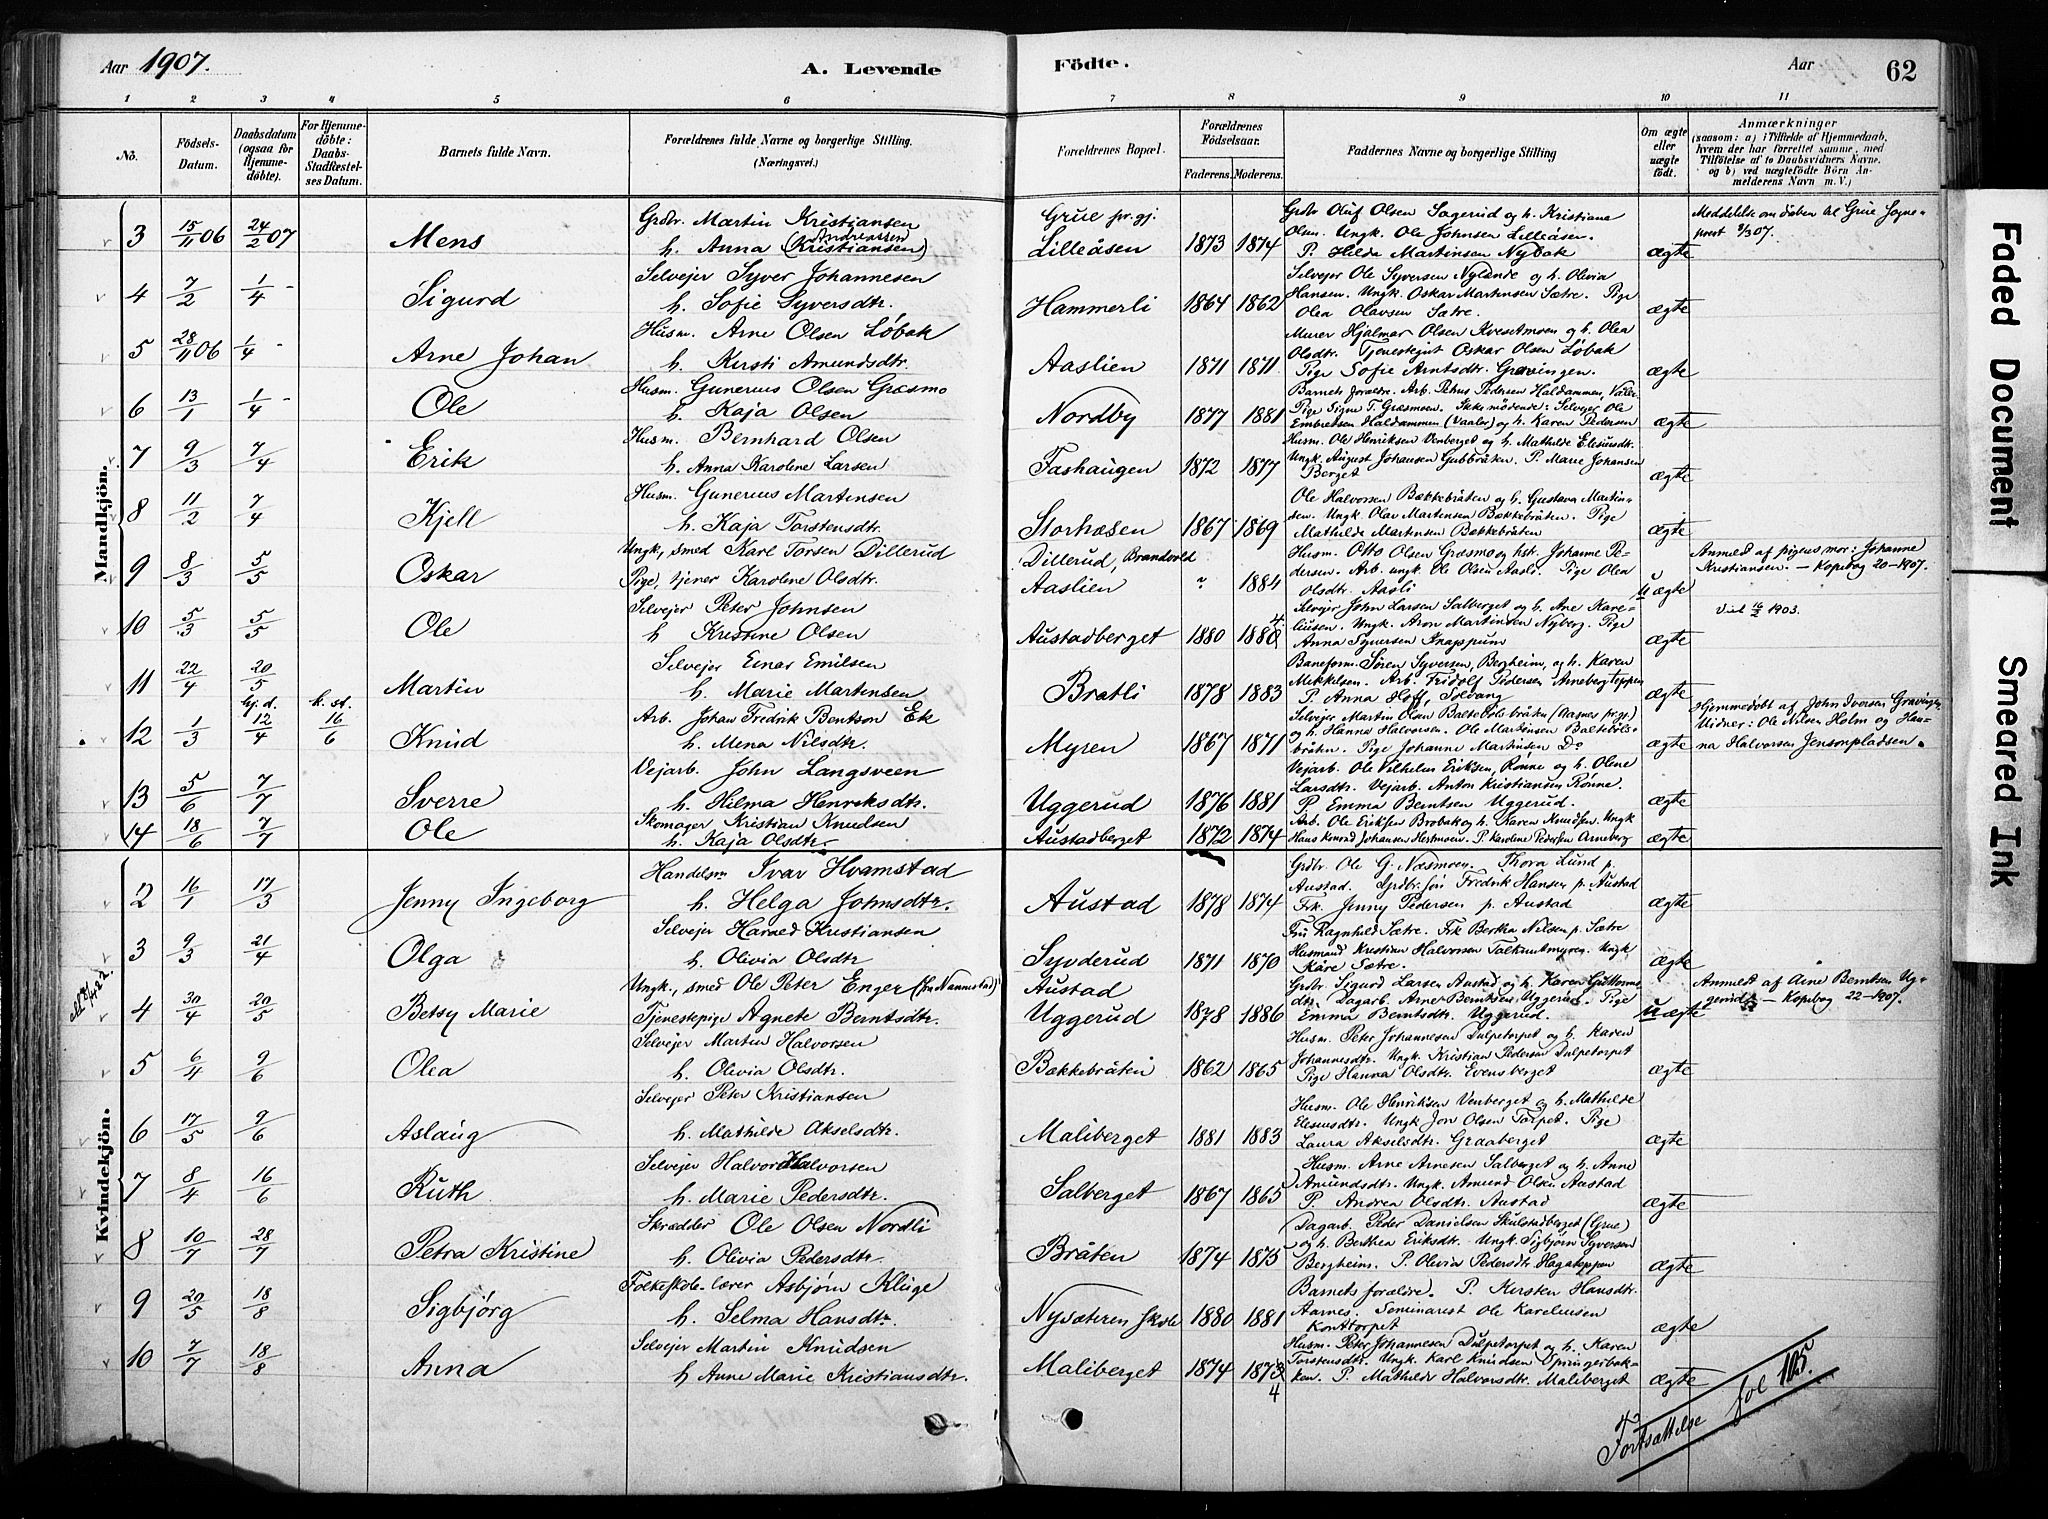 Aar 1907.
A. Levende
Födte.
Aar
62
1 2 3 4 5 6 7 8 9 10 11
No.
Födsels-Datum.
Daabsdatum (ogsaa for Hjemme-döbte).
For Hjemme-döbte: Daabs-Stadfæstel-ses Datum.
Barnets fulde Navn.
Forældrenes fulde Navne og borgerlige Stilling. (Næringsvei.)
Forældrenes Bopæl.
Forældrenes Födselsaar.
Faderens. Moderens.
Faddernes Navne og borgerlige Stilling
Om ægte eller uægte födt.
Anmærkninger
(saasom: a) i Tilfælde af Hjemmedaab, hvem der har forrettet samme, med Tilföielse af to Daabsvidners Navne, og b) ved uægtefödte Börn Anmelderens Navn m. V.)
Mandkjön.
3 15/11 06 24/2 07 Mens
Grdbr. Martin Kristiansen
h. Anna (Kristiansen) Andreassen
Grue pr.gj. Lilleåsen 1873 1874
Grdbr Oluf Olsen Sagerud og h. Kristiane
Olsen. Ungk. Ole Johnsen Lilleåsen.
P. Hilda Martinsen Nybak
ægte
Meddelelse om dåben til Grue Sogne-
prest 9/3 07.
4 7/2 1/4 Sigurd
Selvejer Syver Johannesen
h. Sofie Syversdtr.
Hammerli 1864 1862
Selvejer Ole Syversen Nylænde og h. Olivia
Hansen. Ungk. Oskar Martinsen Sætre. Pige
Olea Olavsen Sætre.
ægte
5 28/11 06 1/4 Arne Johan
Husm. Arne Olsen Løbak
h. Kirsti Amundsdtr.
Aaslien 1871 1871
Murer Hjalmar Olsen Kvesetmoen og h. Olea
Olsdtr. Tjenestegut Oskar Olsen Løbak
Pige Sofie Arntsdtr. Gravingen.
ægte
6 13/1 1/4 Ole
Husm. Gunerius Olsen Græsmo
h. Kaja Olsen
Nordby 1877 1881
Barnets forældre. Arb. Petrus Pedersen Haldammen, Våler.
Pige Signe T. Græsmoen. Ikke mødende: Selvejer Ole
Embretsen Haldammen (Vaaler) og h. Karen Pedersen
ægte
7 9/3 7/4 Erik
Husm. Bernhard Olsen
h. Anna Karoline Larsen
Fashaugen 1872 1877
Husm. Ole Henriksen Venberget og h. Mathilde Elesusdtr.
Ungk. August Johansen Gubbråten. P. Marie Johansen
Berget
ægte
8 11/2 7/4 Kjell
Husm. Gunerius Martinsen
h. Kaja Torstensdtr.
Storhæsen 1867 1869
Ole Halvorsen Bækkebråten og h. Gustava Martin-
sen. Ungk. Olav Martinsen Bækkebråten. Pige
Mathilde Martinsen Bækkebråten
ægte
9 8/3 5/5 Oskar
Ungk, smed Karl Torsen Dillerud
Pige, tjener Karoline Olsdtr.
Dillerud, Brandvold
Aaslien " 1884
Husm. Otto Olsen Græsmo og hst. Johanne Pe-
dersen. Arb. ungk. Ole Olsen Aasli. Pige Olea
Olsdtr. Aasli
uægte
Anmeldt af pigens mor: Johanne
Kristiansen. — Kopibog 20-1907.
10 5/3 5/5 Ole
Selvejer Peter Johnsen
h Kristine Olsen
Austadberget 1880 1880 4
Selvejer John Larsen Salberget og h. Ane Kare-
liusen. Ungk. Aron Martinsen Nyberg. Pige
Anna Syversen Knappum
ægte
Vied 16/2 1903.
11 22/4 20/5 Martin
Selvejer Einar Emilsen
h. Marie Martinsen
Bratli 1878 1883
Baneform. Søren Syversen, Bergheim, og h. Karen
Mikkelsen. Arb. Fridolf Pedersen Arnebergteppen
P. Anna Hoff, Solvang
ægte
12 1/3 hj.d. 12/4 k. st. 16/6 Knud
Arb. Johan Fredrik Bentson Ek
h. Mena Nilsdtr.
Myren 1867 1871
Selvejer Martin Olsen Baltebölsbråten (Aasnes pr.gj.)
og h. Hanna Halvorsen. Ole Martinsen Baltebols-
bråten. Pige Johanne Martinsen Do
ægte
Hjemmedöbt af John Iversen Gravingen.
Vidner: Ole Nilsen Holm og Han-
na Halvorsen Jensonpladsen.
13 5/6 7/7 Sverre
Vejarb. John Langsveen
h. Hilma Henriksdtr.
Uggerud 1876 1881
Vejarb. Ole Vilhelm Eriksen, Rønne og h. Oline
Larsdtr. Vejarb. Anton Kristiansen Rønne.
P. Emma Berntsen Uggerud.
ægte
14 18/6 7/7 Ole
Skomager Kristian Knudsen
h. Kaja Olsdtr.
Austadberget 1872 1874
Arb. Ole Eriksen Brobak og h. Karen Knudsen. Ungk
Hans Konrad Johansen Hestmoen. P. Karoline Pedersen Arneberg
ægte
Kvindekjön.
2 16/1 17/3 Jenny Ingeborg
Handelsm Ivar Hvamstad
h. Helga Johnsdtr.
Austad 1878 1874
Grdbr. Ole G. Næsmoen. Thora Lund p.
Austad. Grdbr.søn Fredrik Hansen p. Austad
Frk. Jenny Pedersen p. Austad
ægte
3 9/3 21/4 Olga
Selvejer Harald Kristiansen
h. Olivia Olsdtr
Syvderud 1871 1870
Fru Ragnhild Sætre. Frk Bertha Nilsen p. Sætre
Husmand Kristian Halvorsen Talhuutmyren. Ungk
Kåre Sætre.
ægte
4 30/4 20/5 Betsy Marie
Ungk., smed Ole Peter Enger (fra Nannestad)
Tjenestepige Agnete Berntsdtr.
Austad
Uggerud 1878 1886
Grdbr. Sigurd Larsen Austad og h. Karen Guttorms-
dtr. Dagarb. Arne Berntsen Uggerud. Pige
Emma Berntsdtr. Uggerud.
uægte
Anmeldt af Arne Berntsen Ug-
gerud — Kopibog 22-1907.
5 6/4 9/6 Olea
Selvejer Martin Halvorsen
h. Olivia Olsdtr.
Bækkebråten 1862 1865
Husm. Peter Johannesen Dulpetorpet og h. Karen
Johannesdtr. Ungk. Kristian Pedersen Dulpetorpet
Pige Hanna Olsdtr. Evensberget
ægte
6 17/5 9/6 Aslaug
Selvejer Peter Kristiansen
h. Mathilde Akselsdtr.
Maliberget 1881 1883
Husm. Ole Henriksen Venberget og h. Mathilde
Elesusdtr. Ungk Jon Olsen Torpet. Pige
Laura Akselsdtr. Graaberget
ægte
7 8/4 16/6 Ruth
Selvejer Halvor Halvorsen
h. Marie Pedersdtr.
Salberget 1867 1865
Husm. Arne Arnesen Salberget og h. Anne
Amundsdtr. Ungk. Amund Olsen Austad
P. Andrea Olsdtr. Austad
ægte
8 10/7 28/7 Petra Kristine
Skrædder Ole Olsen Nordli
h. Olivia Pedersdtr.
Bråten 1874 1875
Dagarb. Peder Danielsen Skulstadberget (Grue)
og h. Berthea Eriksdtr. Ungk. Sigbjørn Syversen
Bergheim. P. Olivia Pedersdtr Hagateppen
ægte
9 20/5 18/8 Sigbjörg
Folkeskole-lærer Asbjørn Kluge
h. Selma Hansdtr.
Nysæteren Skole 1880 1881
Barnets forældre. P. Kirsten Hansdtr.
Aarnes. Seminarist Ole Kareliusen
Konttorpet
ægte
10 7/7 18/8 Anna
Selvejer Martin Knudsen
h Anne Marie Kristiansdtr.
Maliberget 1874 1873 4
Husm. Peter Johannesen Dulpetorpet og h. Karen
Torstensdtr. Ungk. Karl Knudsen Springerbak-
ken. P. Mathilde Halvorsdtr. Maliberget
ægte
Fortsættelse fol 105.
Faded Document
Smeared Ink